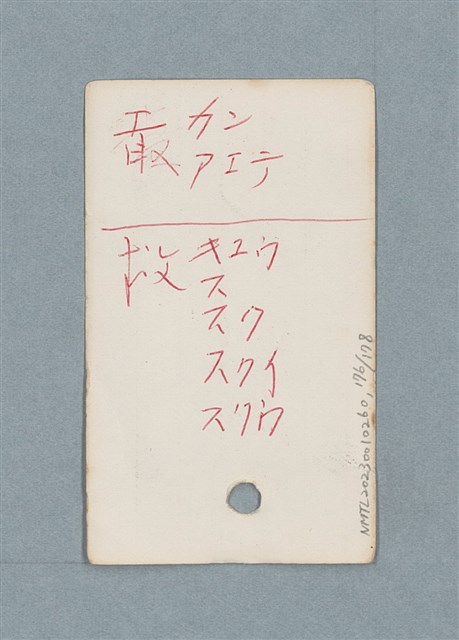 敢 カン
アエテ
救 キユウ
ス
スク
スクイ
スクウ
NMTL20230010260, 176/178